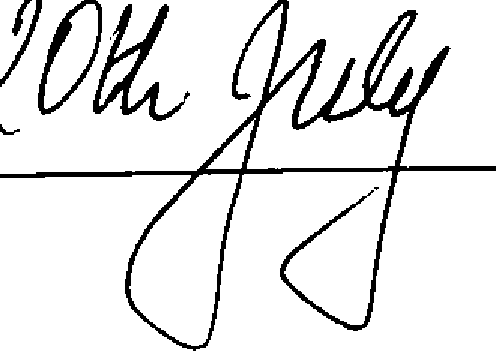 20th July